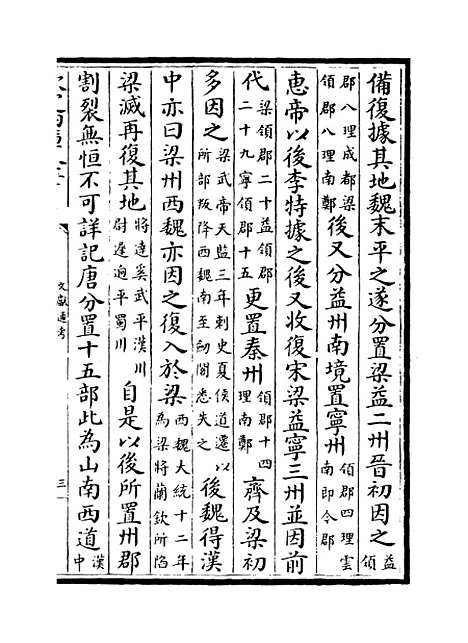 備復據其地魏末平之遂分置梁益二州晉初因之益領
郡八理成都梁領郡八理南鄭後又分益州南境置寧州領郡四理雲南即今郡
惠帝以後李特據之後又收復宋梁益寧三州並因前
代梁領郡二十益領郡二十九寧領郡十五更置秦州領郡十四理南鄭齊及梁初
多因之梁武帝天監三年刺史夏侯道遷以所部叛降西魏南至劒閣悉失之後魏得漢
中亦曰梁州西魏亦因之復入於梁西魏大統十二年為梁將蘭欽所陷
梁滅再復其地將達奚武平漢川尉遲迥平蜀川自是以後所置州郡
割裂無恒不可詳記唐分置十五部此為山南西道漢中
文獻通考